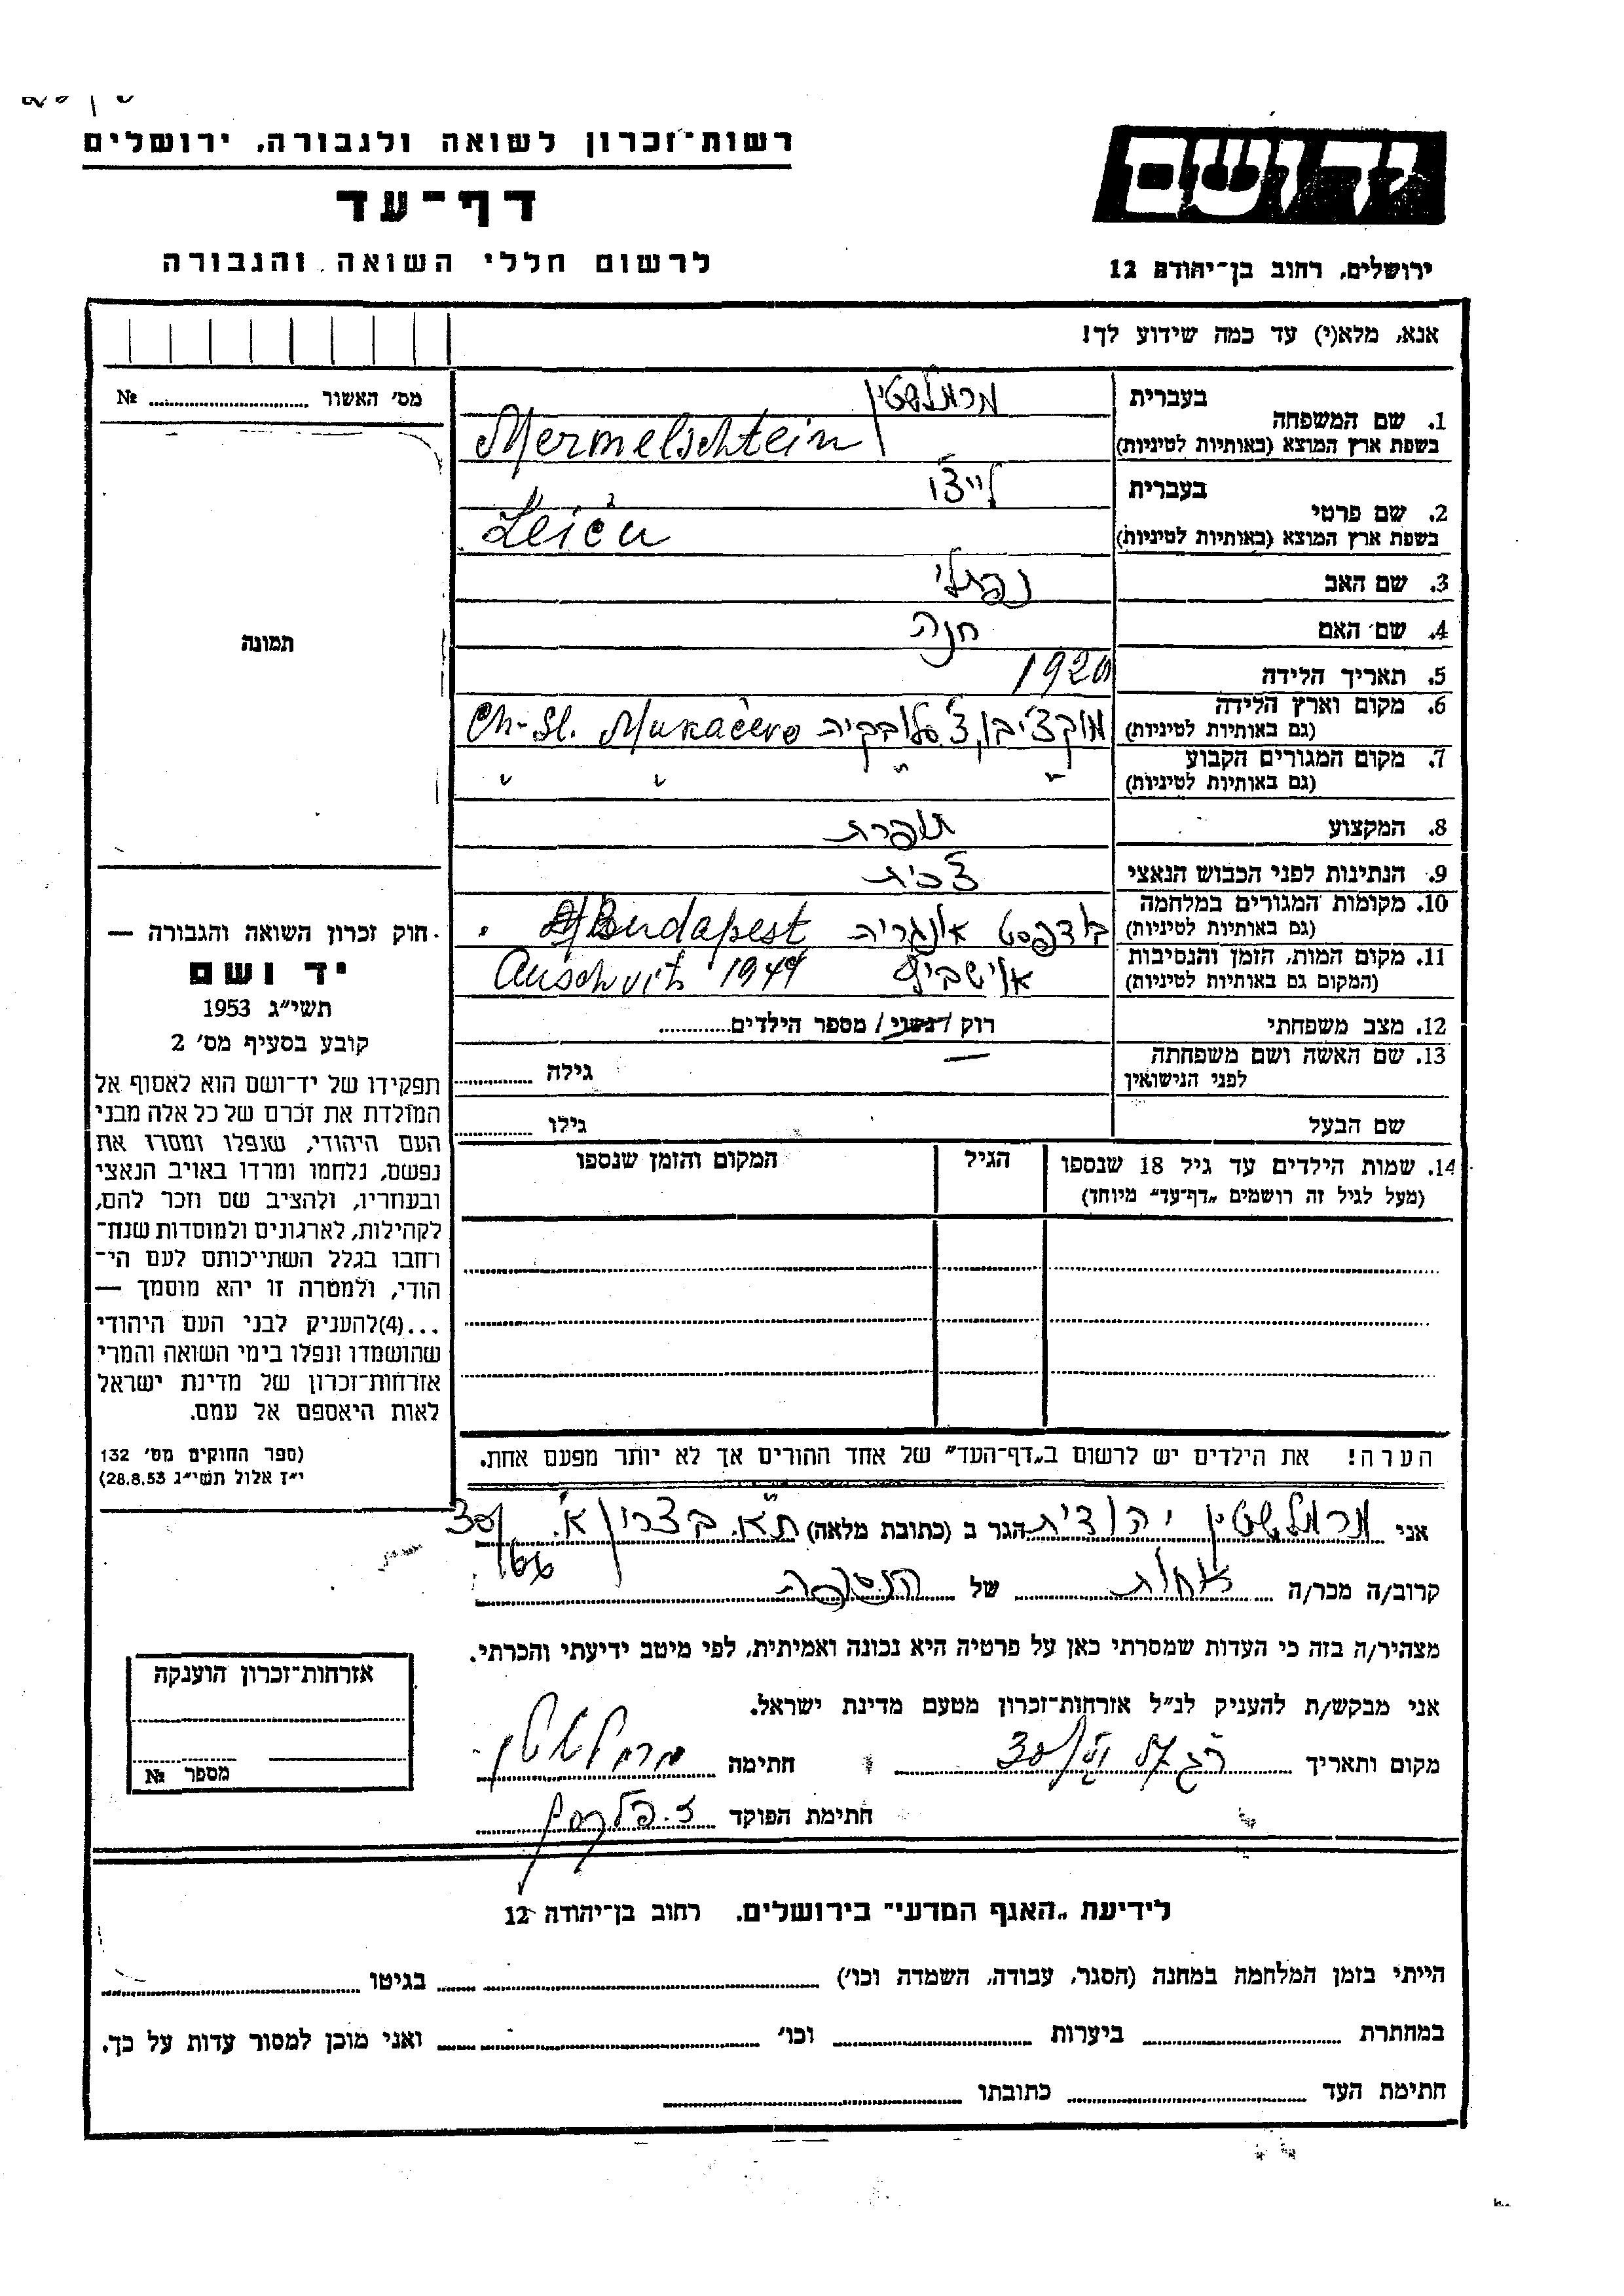 רשות־זכרון לשואה ולגבורה, ירושלים
דף־עד
לרשום חללי השואה והגבורה
יד ושם
ירושלים, רחוב בן־יהודה 12
אנא, מלא(י) עד כמה שידוע לך!
מס׳ האשור № ....................
תמונה
1. שם המשפחה
בעברית מרמלשטין
בשפת ארץ המוצא (באותיות לטיניות) Mermelschtein
2. שם פרטי
בעברית לייצ׳ו
בשפת ארץ המוצא (באותיות לטיניות) Leiču
3. שם האב נפתלי
4. שם האם חנה
5. תאריך הלידה 1920
6. מקום וארץ הלידה
(גם באותיות לטיניות) מוקצ׳בו, צ׳סלובקיה Ch-Sl. Mukačevo
7. מקום המגורים הקבוע
(גם באותיות לטיניות) " " " "
8. המקצוע תופרת
9. הנתינות לפני הכבוש הנאצי צ׳כית
10. מקומות המגורים במלחמה
(גם באותיות לטיניות) בודפסט אונגריה Budapest
11. מקום המות, הזמן והנסיבות
(המקום גם באותיות לטיניות) אוישביץ Auschvitz 1944
12. מצב משפחתי רוק / נשוי / מספר הילדים............
13. שם האשה ושם משפחתה
לפני הנישואין — גילה ............
שם הבעל גילו ............
14. שמות הילדים עד גיל 18 שנספו
(מעל לגיל זה רושמים „דף־עד״ מיוחד)
הגיל
המקום והזמן שנספו
הערה! את הילדים יש לרשום ב„דף־העד״ של אחד ההורים אך לא יותר מפעם אחת.
חוק זכרון השואה והגבורה —
יד ושם
תשי״ג 1953
קובע בסעיף מס׳ 2
תפקידו של יד־ושם הוא לאסוף אל
המולדת את זכרם של כל אלה מבני
העם היהודי, שנפלו ומסרו את
נפשם, נלחמו ומרדו באויב הנאצי
ובעוזריו, ולהציב שם וזכר להם,
לקהילות, לארגונים ולמוסדות שנח־
רחבו בגלל השתייכותם לעם הי־
הודי, ולמטרה זו יהא מוסמך —
...(4) להעניק לבני העם היהודי
שהושמדו ונפלו בימי השואה והמרי
אזרחות־זכרון של מדינת ישראל
לאות היאספם אל עמם.
(ספר החוקים מס׳ 132
י״ז אלול תשי״ג 28.8.53)
אני מרמלשטין יהודית הגר ב (כתובת מלאה) ת״א. בצרון א׳.
קרוב/ה מכר/ה אחות של הנספה
מצהיר/ה בזה כי העדות שמסרתי כאן על פרטיה היא נכונה ואמיתית, לפי מיטב ידיעתי והכרתי.
אני מבקש/ת להעניק לנ״ל אזרחות־זכרון מטעם מדינת ישראל.
מקום ותאריך חתימה מרמלשטין
חתימת הפוקד
אזרחות־זכרון הוענקה
מספר №
לידיעת „האגף המדעי״ בירושלים. רחוב בן־יהודה 12
הייתי בזמן המלחמה במחנה (הסגר, עבודה, השמדה וכו׳) .................... בגיטו ....................
במחתרת .................... ביערות .................... וכו׳ .................... ואני מוכן למסור עדות על כך.
חתימת העד .................... כתובתו ....................